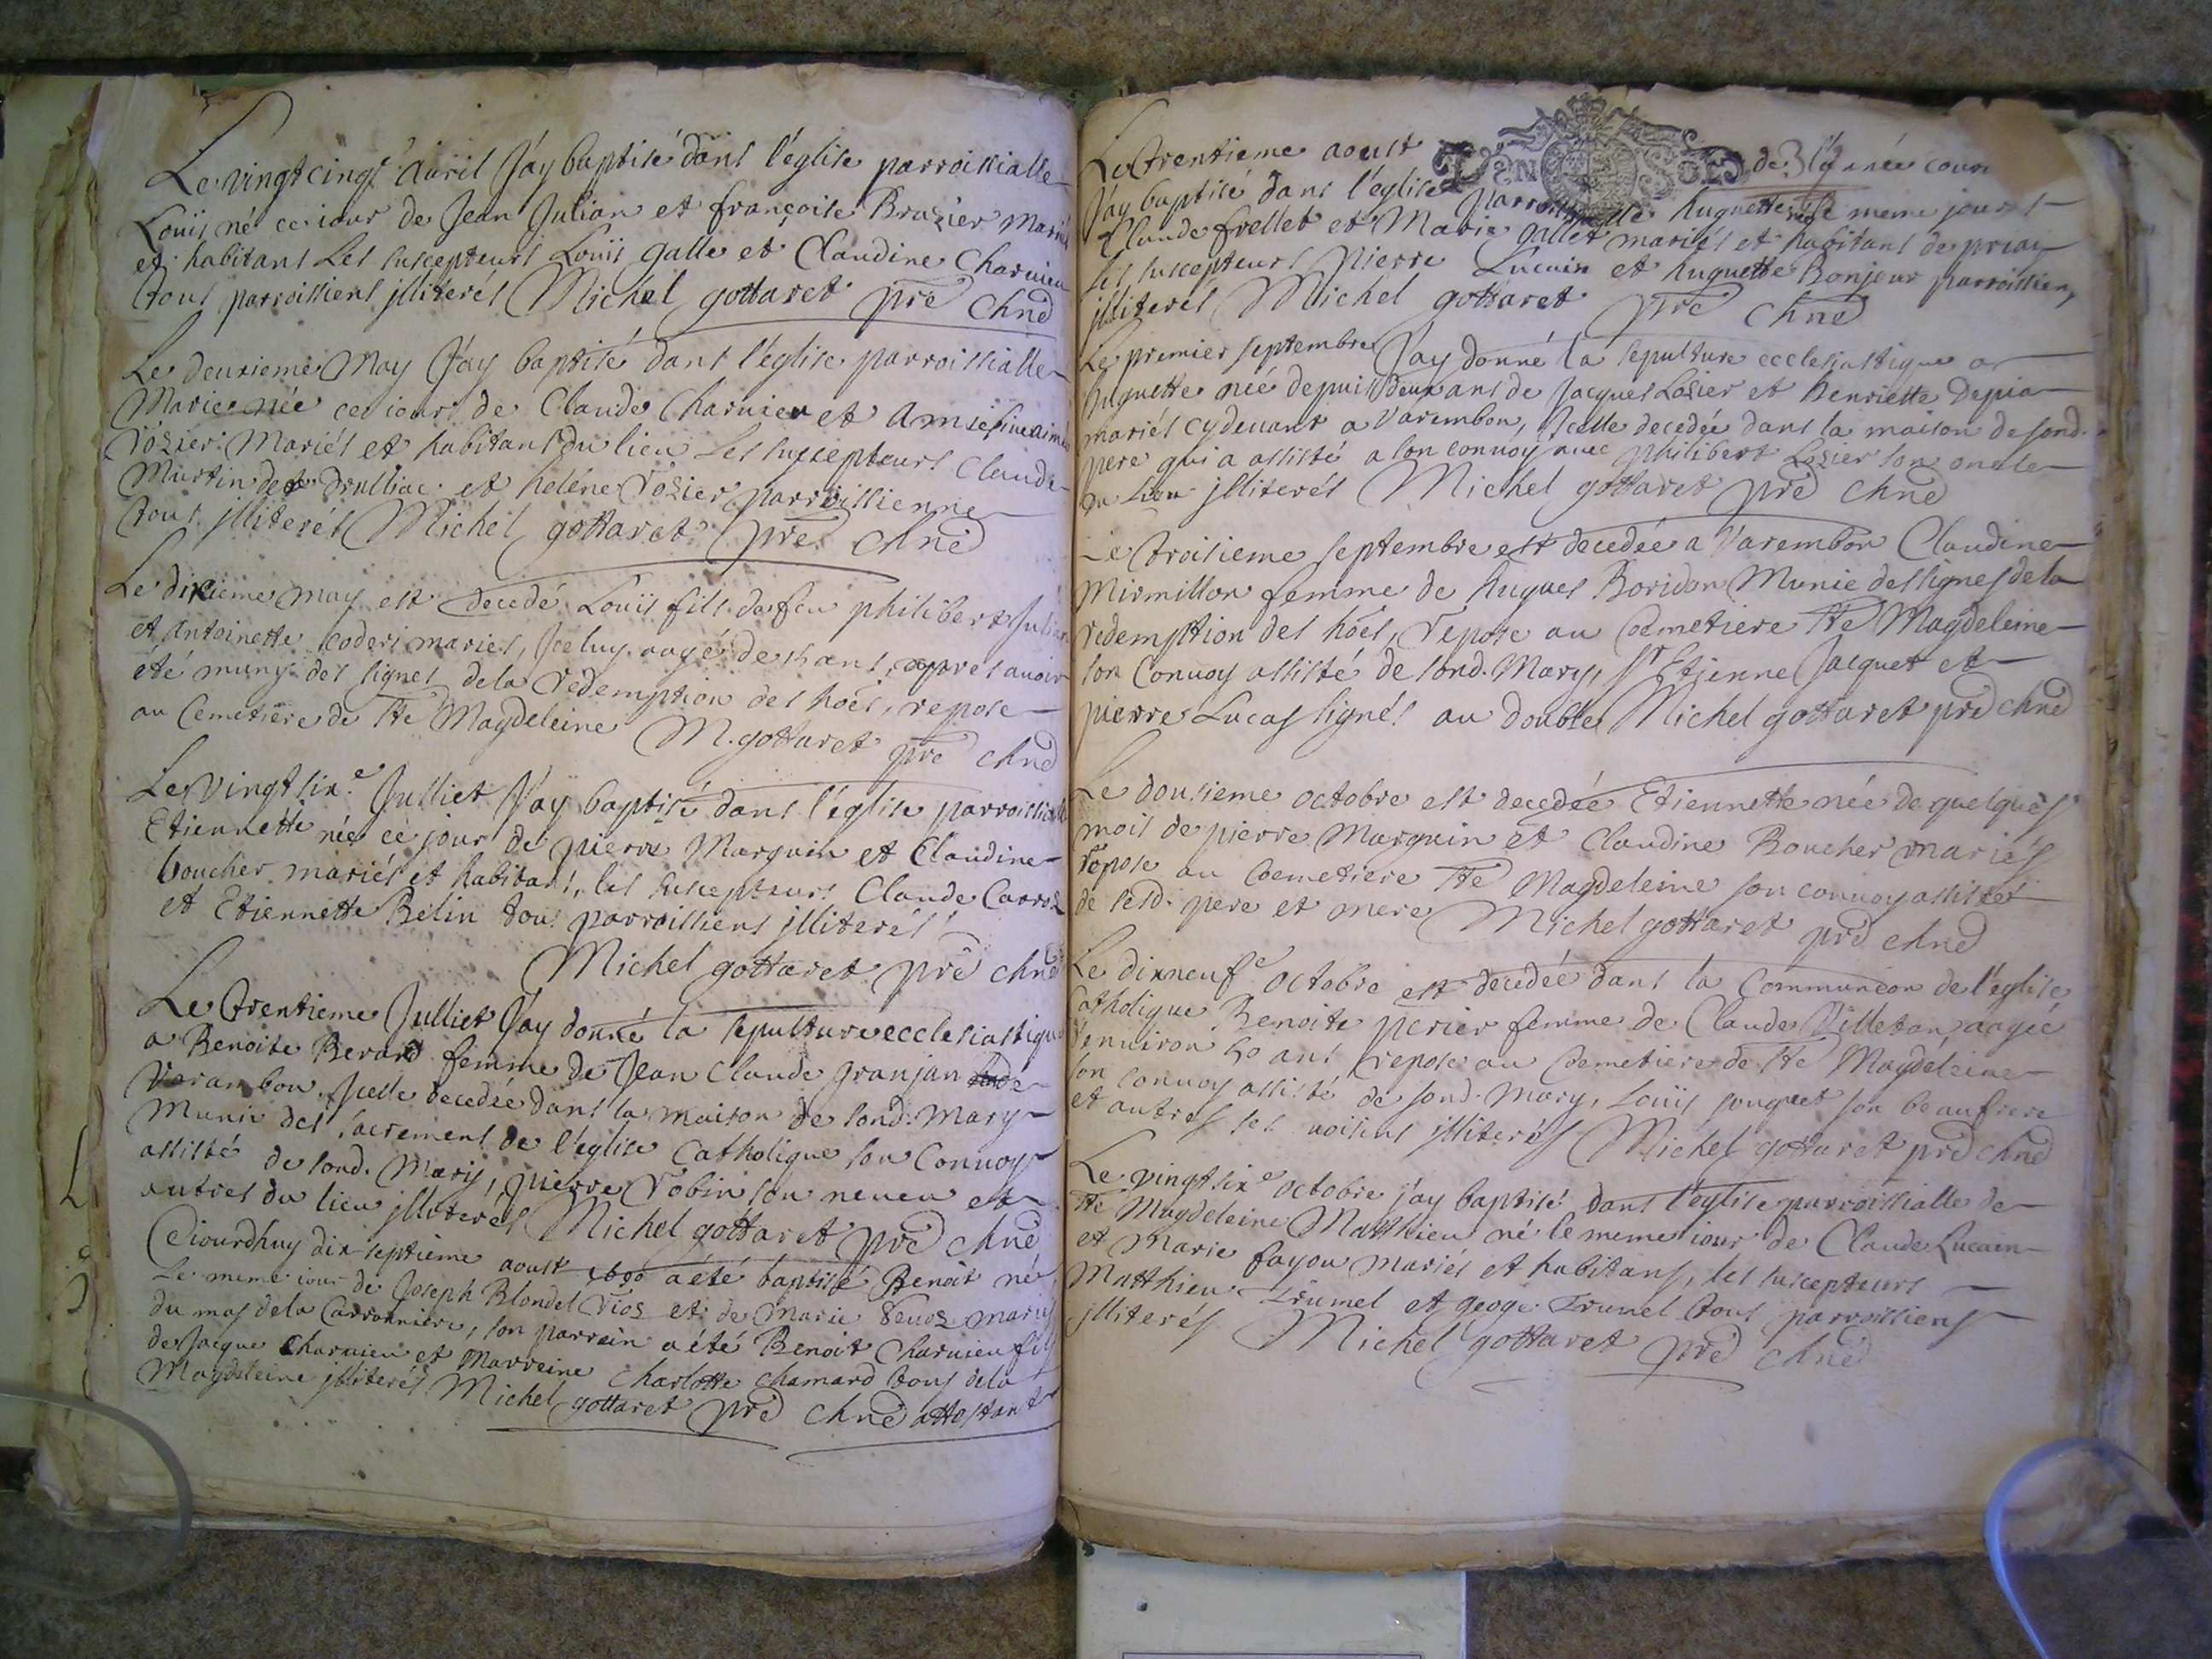 Le vingtcinq.e Auril J'ay baptisé dans l'église parroissialle
Loüis né ce iour de Jean Julian et françoise Brasier Mariés
et habitans Les suscepteurs Loüis galle et Claudine Charuieu
tous parroissiens jlliterés Michel gottaret pre Chne
Le deuxieme May J'ay baptisé dans l'église parroissialle
Marie née ce iour de Claude Charuieu et
rosier Mariés et habitans du lieu Les suscepteurs Claude
Martin de Drulliac et heléne rosier parroissienne
tous jlliterés Michel gottaret pre Chne
Le dixieme may est decedé Loüis fils de feu philibert Julian
et Antoinette coderi mariés, Jceluy aagé de ans, apprés auoir
été muny des signes dela redemption des hoês, repose
au Cemetiere de Ste Magdeleine M. gottaret pre Chne
Le Vingtsix.e Julliet J'ay baptisé dans l'église parroissialle
Etiennette née ce jour de pierre Marguin et Claudine
boucher mariés et habitans, les suscepteurs Claude Carroz
et Etiennette Belin tous parroissiens jlliterés
Michel gottaret pre chne
Le trentieme Julliet J'ay donné la sepulture ecclesiastique
a Benoite Berard femme de Jean Claude granjan de
Varambon Jcelle decedée dans la maison de sond. Mary
Munie des sacrements de l'église Catholique son Conuoy
assisté de sond. Mary, pierre robin son neueu et
autres du lieu jlliterés Michel gottaret pre chne
Ceiourdhuy dix-septieme aoust 1690 a été baptisé Benoit né
Le meme iour de Joseph Blondel Vioz et de Marie mariés
du mas dela Carronniere, son parrein a été Benoit Charuieu fils
de Jacque Charuieu et Marreine Charlotte Chamard tous dela
Magdeleine jlliterés Michel gottaret pre chne attestant
Le trentieme aoust de l'année cour
J'ay baptisé dans l'église parroissialle huguette née le meme jour
Claude frellet et Marie gallet mariés et habitans de priay
Les suscepteurs pierre Lucain et huguette Bonjour parroissiens
jlliterés Michel gottaret pre Chne
Le premier septembre J'ay donné la sepulture ecclesiastique a
huguette née depuis deux ans de Jacques Losier et henriette Depia
mariés cydeuant a Varembon, Jcelle decedée dans la maison de sond.
pere qui a assisté a son conuoy auec philibert Losier son oncle
du Lieu jlliterés Michel gottaret pre Chne
Le troisieme septembre est decedée a Varembon Claudine
Mirmillon femme de hugues Boridon Munie des signes dela
redemption des hoês, repose au Coemetiere Ste Magdeleine
son Conuoy assisté de sond. Mary, Sr Etienne Jacquet et
pierre Lucas signés au double Michel gottaret pre chne
Le dousieme octobre est decedée Etiennette née de quelques
mois de pierre Marguin et Claudine Boucher mariés
repose au Coemetiere Ste Magdeleine son conuoy assisté
de sesd. pere et mere Michel gottaret pre chne
Le dixneuf.e octobre est decedée dans la Communion de l'église
Catholique Benoite perier femme de Claude Villeton, aagée
d'enuiron 50 ans repose au Coemetiere de Ste Magdeleine
son conuoy assisté de sond. Mary, Loüis souquet son beaufrere
et autres ses uoisins jlliterés Michel gottaret pre chne
Le vingtsix.e octobre j'ay baptisé dans l'église parroissialle de
Ste Magdeleine Matthieu né le meme iour de Claude Lucain
et Marie fayou mariés et habitans, les suscepteurs
Matthieu Trumel et geoge Trumel tous parroissiens
jlliterés Michel gottaret pre chne